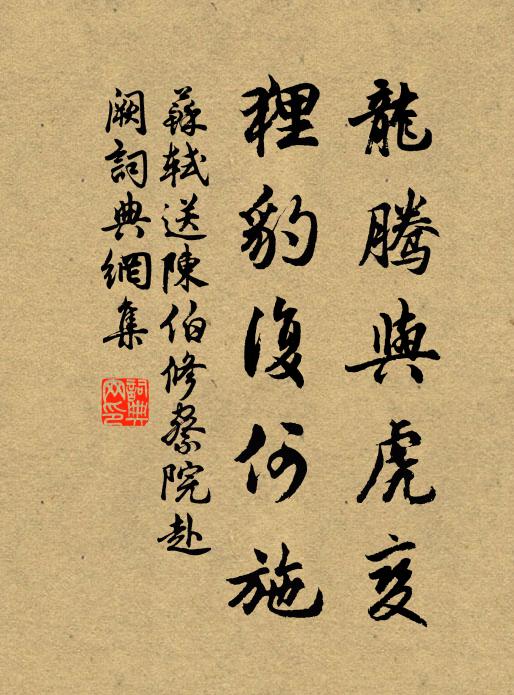 龍騰與虎變
狸豹復何施
蘇軾送陳伯修察院赴
闕詞典網集
詞典網印